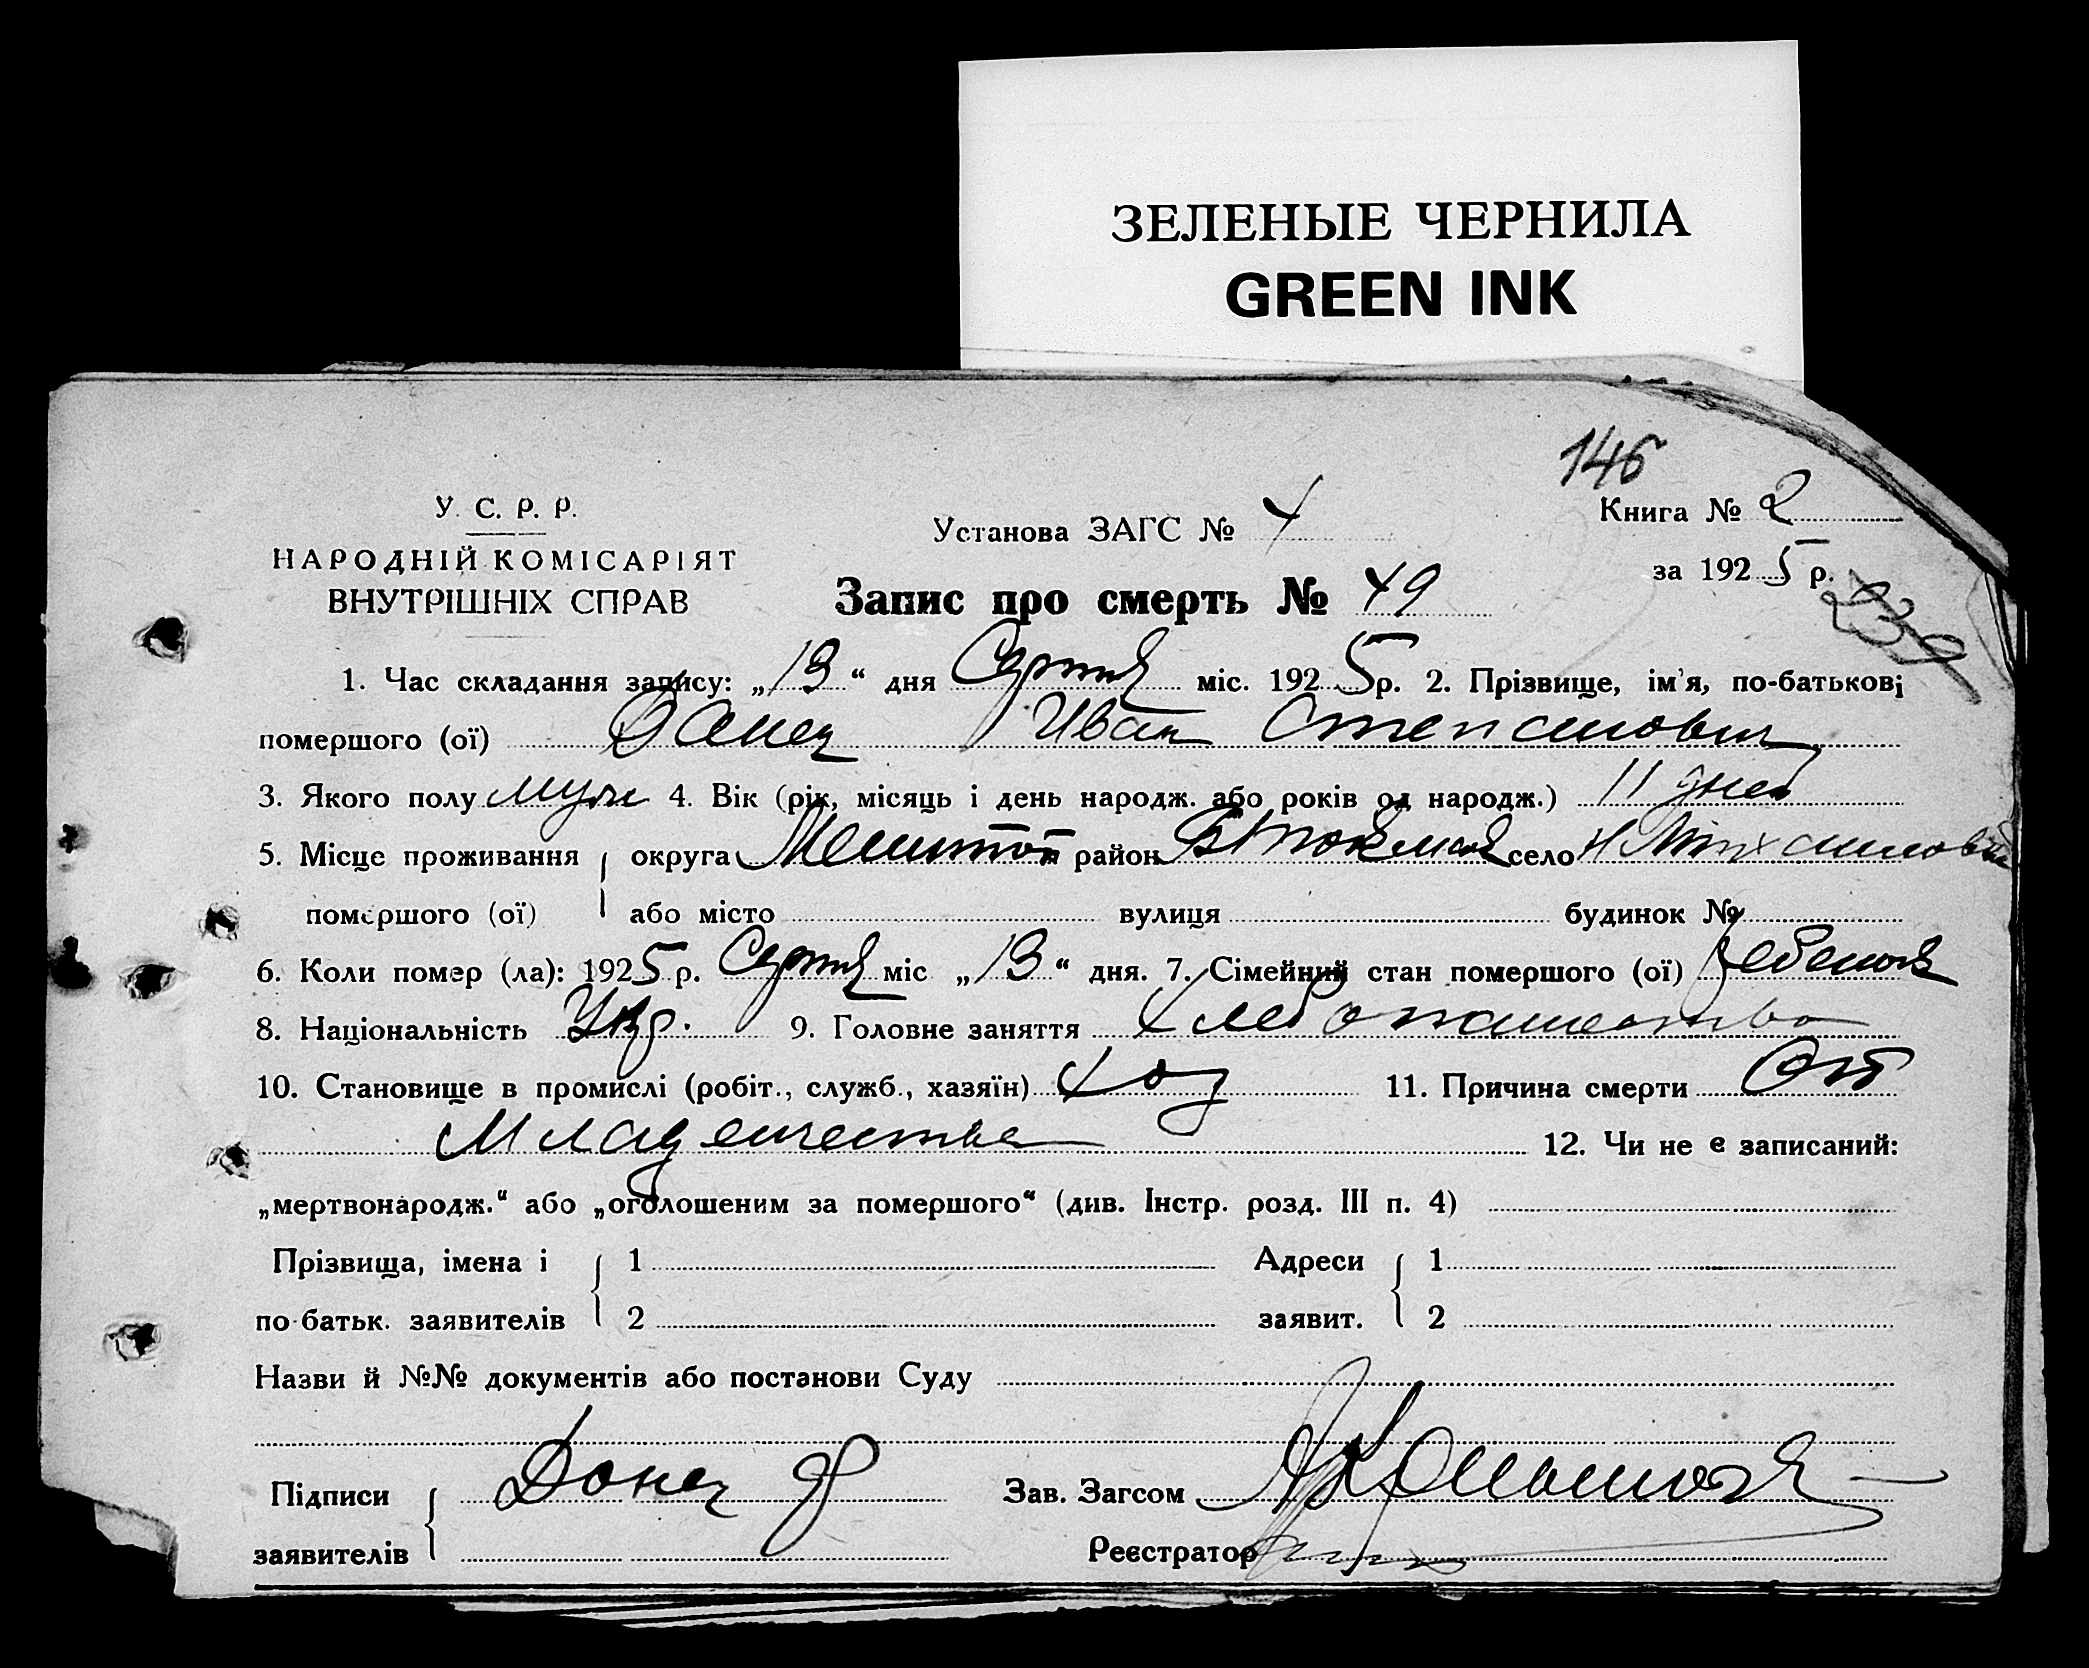 ЗЕЛЕНЫЕ ЧЕРНИЛА
GREEN INK
146
У. С. Р. Р.
НАРОДНІЙ КОМІСАРІЯТ
ВНУТРІШНІХ СПРАВ
Установа ЗАГС № 4
Книга № 2
за 1925 р.
239
Запис про смерть № 49
1. Час складання запису: „13“ дня Серпня міс. 1925 р. 2. Прізвище, ім'я, по-батькові
помершого (ої) Данец Иван Степанович
3. Якого полу муж 4. Вік (рік, місяць і день народж. або років од народж.) 11 дней
5. Місце проживання округа район село
помершого (ої) або місто вулиця будинок №
6. Коли помер (ла): 1925 р. Серпня міс „13“ дня. 7. Сімейний стан помершого (ої)
8. Національність Укр. 9. Головне заняття Хлебопашество
10. Становище в промислі (робіт., служб., хазяїн) хоз 11. Причина смерти От
Младенчества 12. Чи не є записаний:
„мертвонародж.“ або „оголошеним за помершого“ (див. Інстр. розд. III п. 4)
Прізвища, імена і 1 Адреси 1
по-батьк. заявителів 2 заявит. 2
Назви й №№ документів або постанови Суду
Підписи Донец Зав. Загсом
заявителів Реєстратор